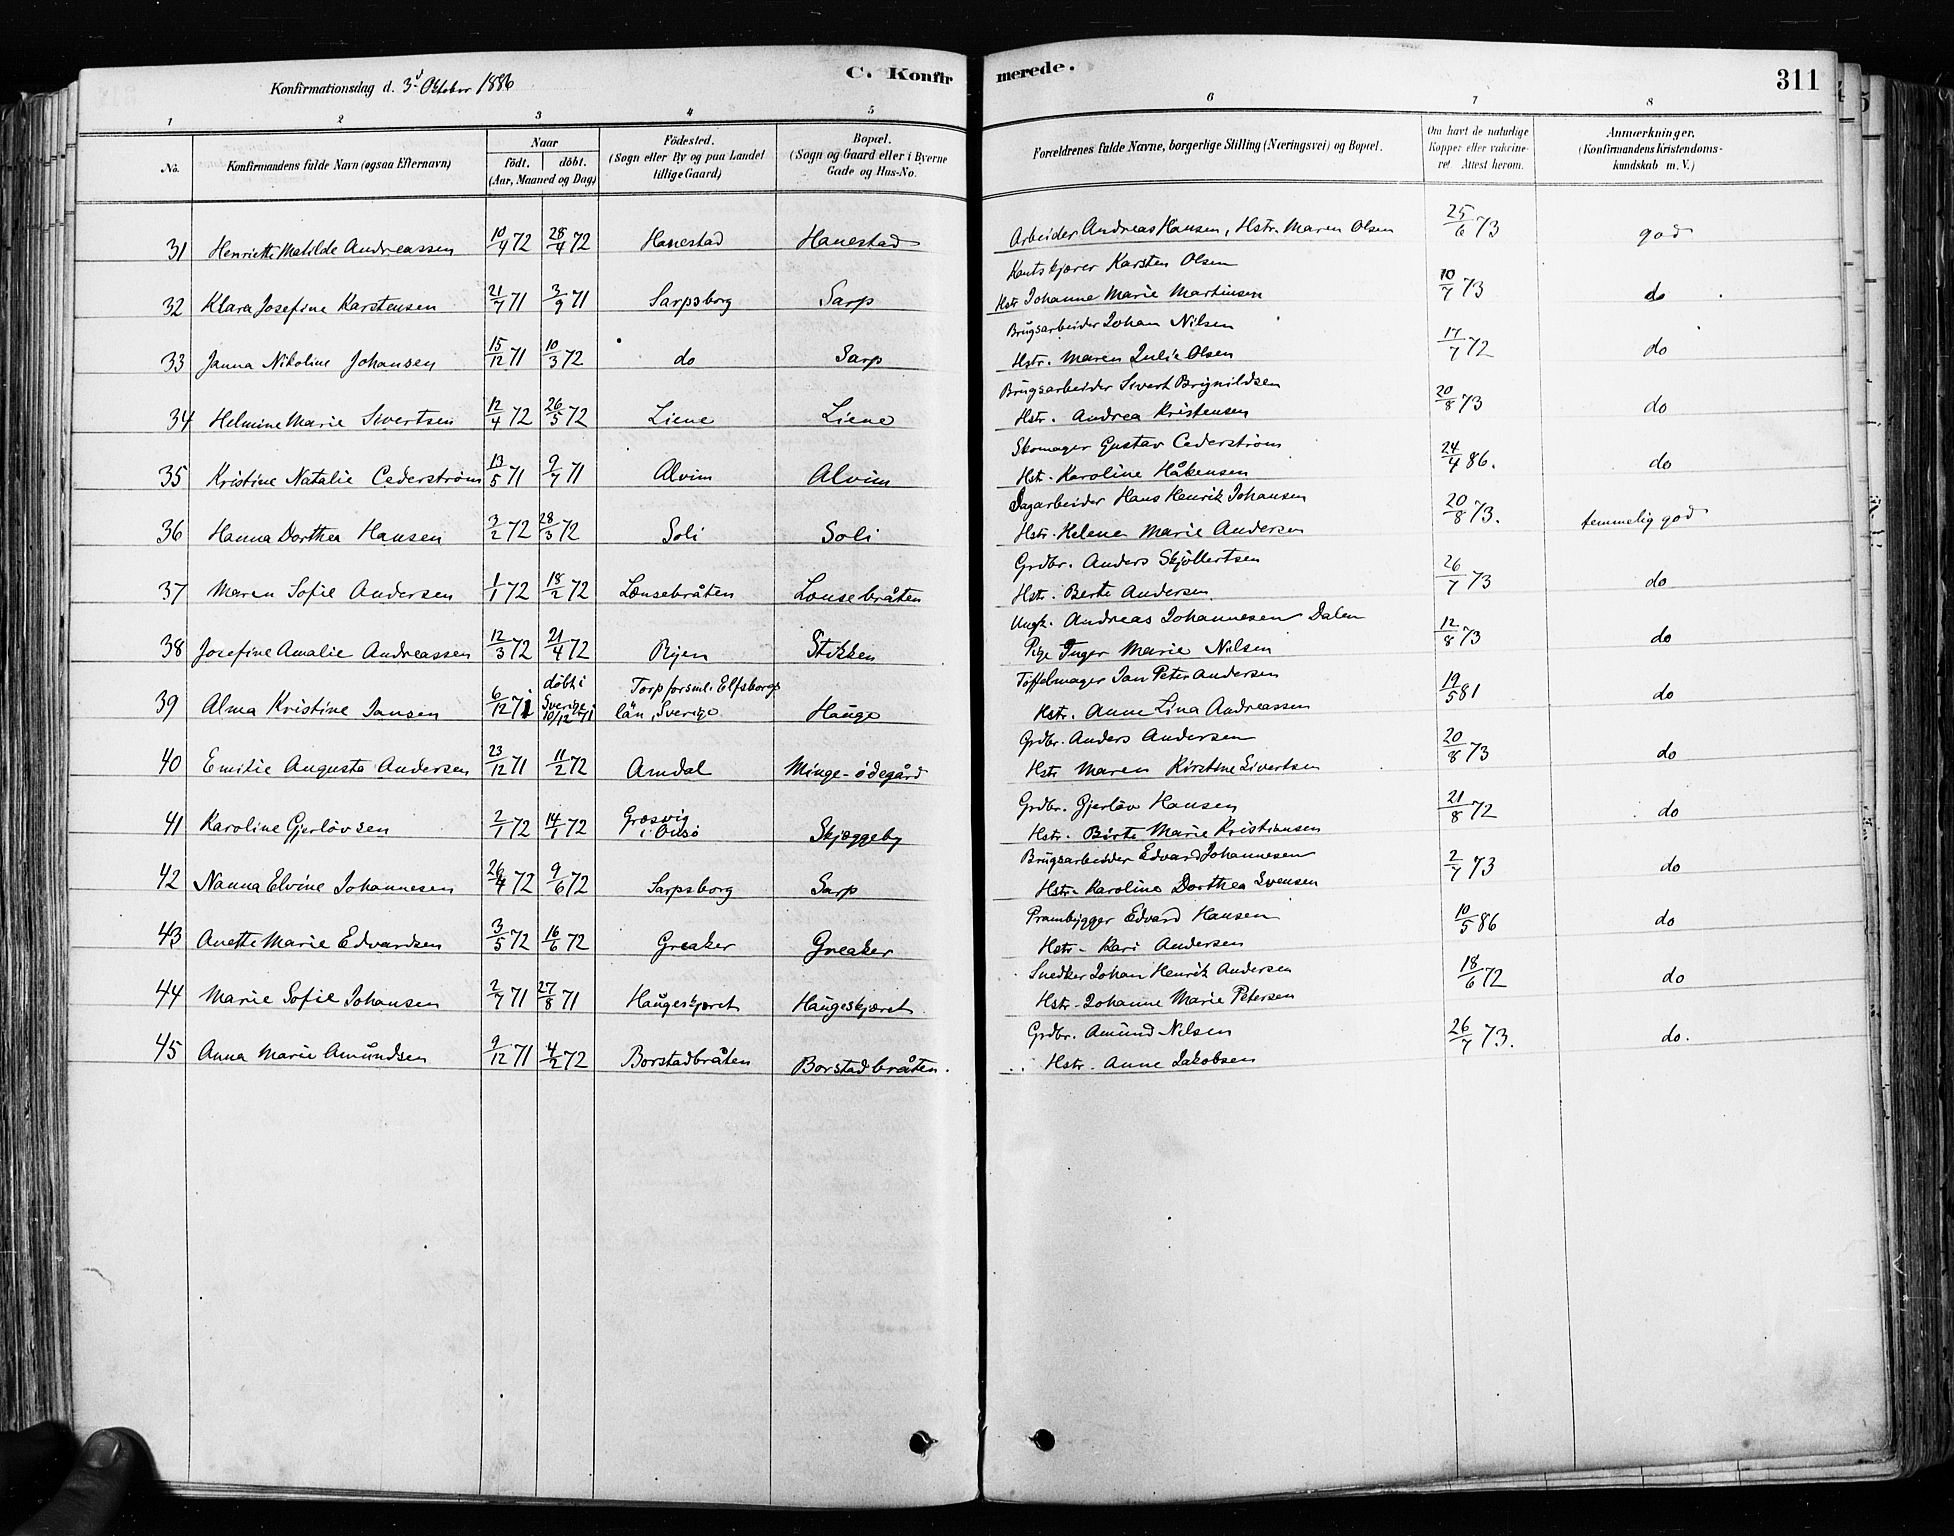 Konfirmationsdag d. 3d Oktober 1886
C. Konfirmerede.
311
1 2 3 4 5 6 7 8
No.
Konfirmandens fulde Navn (ogsaa Efternavn)
Naar
födt. döbt.
(Aar, Maaned og Dag)
Födested.
(Sogn eller By og paa Landet
tillige Gaard)
Bopæl.
(Sogn og Gaard eller i Byerne
Gade og Hus-No.
Forældrenes fulde Navne, borgerlige Stilling (Næringsvei) og Bopæl.
Om havt de naturlige
Kopper eller vakcine-
ret. Attest herom.
Anmærkninger.
(Konfirmandens Kristendoms-
kundskab m. V.)
31 Henriette Matilde Andreassen 10/4 72 28/4 72 Hanestad Hanestad Arbeider Andreas Hansen, Hstr. Maren Olsen 25/6 73 god
Karsten Olsen
32 Klara Josefine Karstensen 21/7 71 3/9 71 Sarpsborg Sarp Hstr. Johanne Marie Martinsen 10/7 73 do
Brugsarbeider Johan Nilsen
33 Janna Nikoline Johansen 15/12 71 10/3 72 do Sarp Hstr. Maren Julie Olsen 17/7 72 do
Brugsarbeider Sivert Brynildsen
34 Helmine Marie Sivertsen 12/4 72 26/5 72 Liene Liene Hstr. Andrea Kristensen 20/8 73 do
Skomager Gustav Cederström
35 Kristine Natalie Cederström 13/5 71 9/7 71 Alvim Alvim Hstr. Karoline Håkensen 24/4 86. do
Dagarbeider Hans Henrik Johansen
36 Hanna Dorthea Hansen 3/2 72 28/3 72 Soli Soli Hstr. Helene Marie Andersen 20/8 73. temmelig god
Grdbr. Anders Skjöllertsen
37 Maren Sofie Andersen 1/1 72 18/2 72 Lousebråten Lousebråten Hstr. Berte Andersen 26/7 73 do
Ungk. Andreas Johannesen Dalen
38 Josefine Amalie Andreassen 12/3 72 21/4 72 Ryen Stikken Pige Inger Marie Nilsen 12/8 73 do
Töffelmager Jan Peter Andersen
39 Alma Kristine Jansen 6/12 71 döbt i Sverige 10/12 71 Torp forsml. Elfsborgs län, Sverige Hauge Hstr. Anne Lina Andreassen 19/5 81 do
Grdbr. Anders Andersen
40 Emilie Augusta Andersen 23/12 71 11/2 72 Amdal Minge-ödegård Hstr Maren Kirstine Sivertsen 20/8 73 do
Grdbr. Gjerlöv Hansen
41 Karoline Gjerlövsen 2/1 72 14/1 72 Græsvig i Onsö Skjæggeby Hstr. Börte Marie Kristiansen 21/8 72 do
Brugsarbeider Edvard Johannesen
42 Nanna Elvine Johannesen 26/4 72 9/6 72 Sarpsborg Sarp Hstr. Karoline Dorthea Svensen 2/7 73 do
Prambygger Edvard Hansen
43 Anette Marie Edvardsen 3/5 72 16/6 72 Greaker Greaker Hstr. Kari Andersen 10/5 86 do
Snedker Johan Henrik Andersen
44 Marie Sofie Johansen 2/7 71 27/8 71 Haugeskjæret Haugeskjæret Hstr. Johanne Marie Petersen 18/6 72 do
Grdbr. Amund Nilsen
45 Anna Marie Amundsen 9/12 71 4/2 72 Borstadbråten Borstadbråten. Hstr. Anne Jakobsen 26/7 73. do.